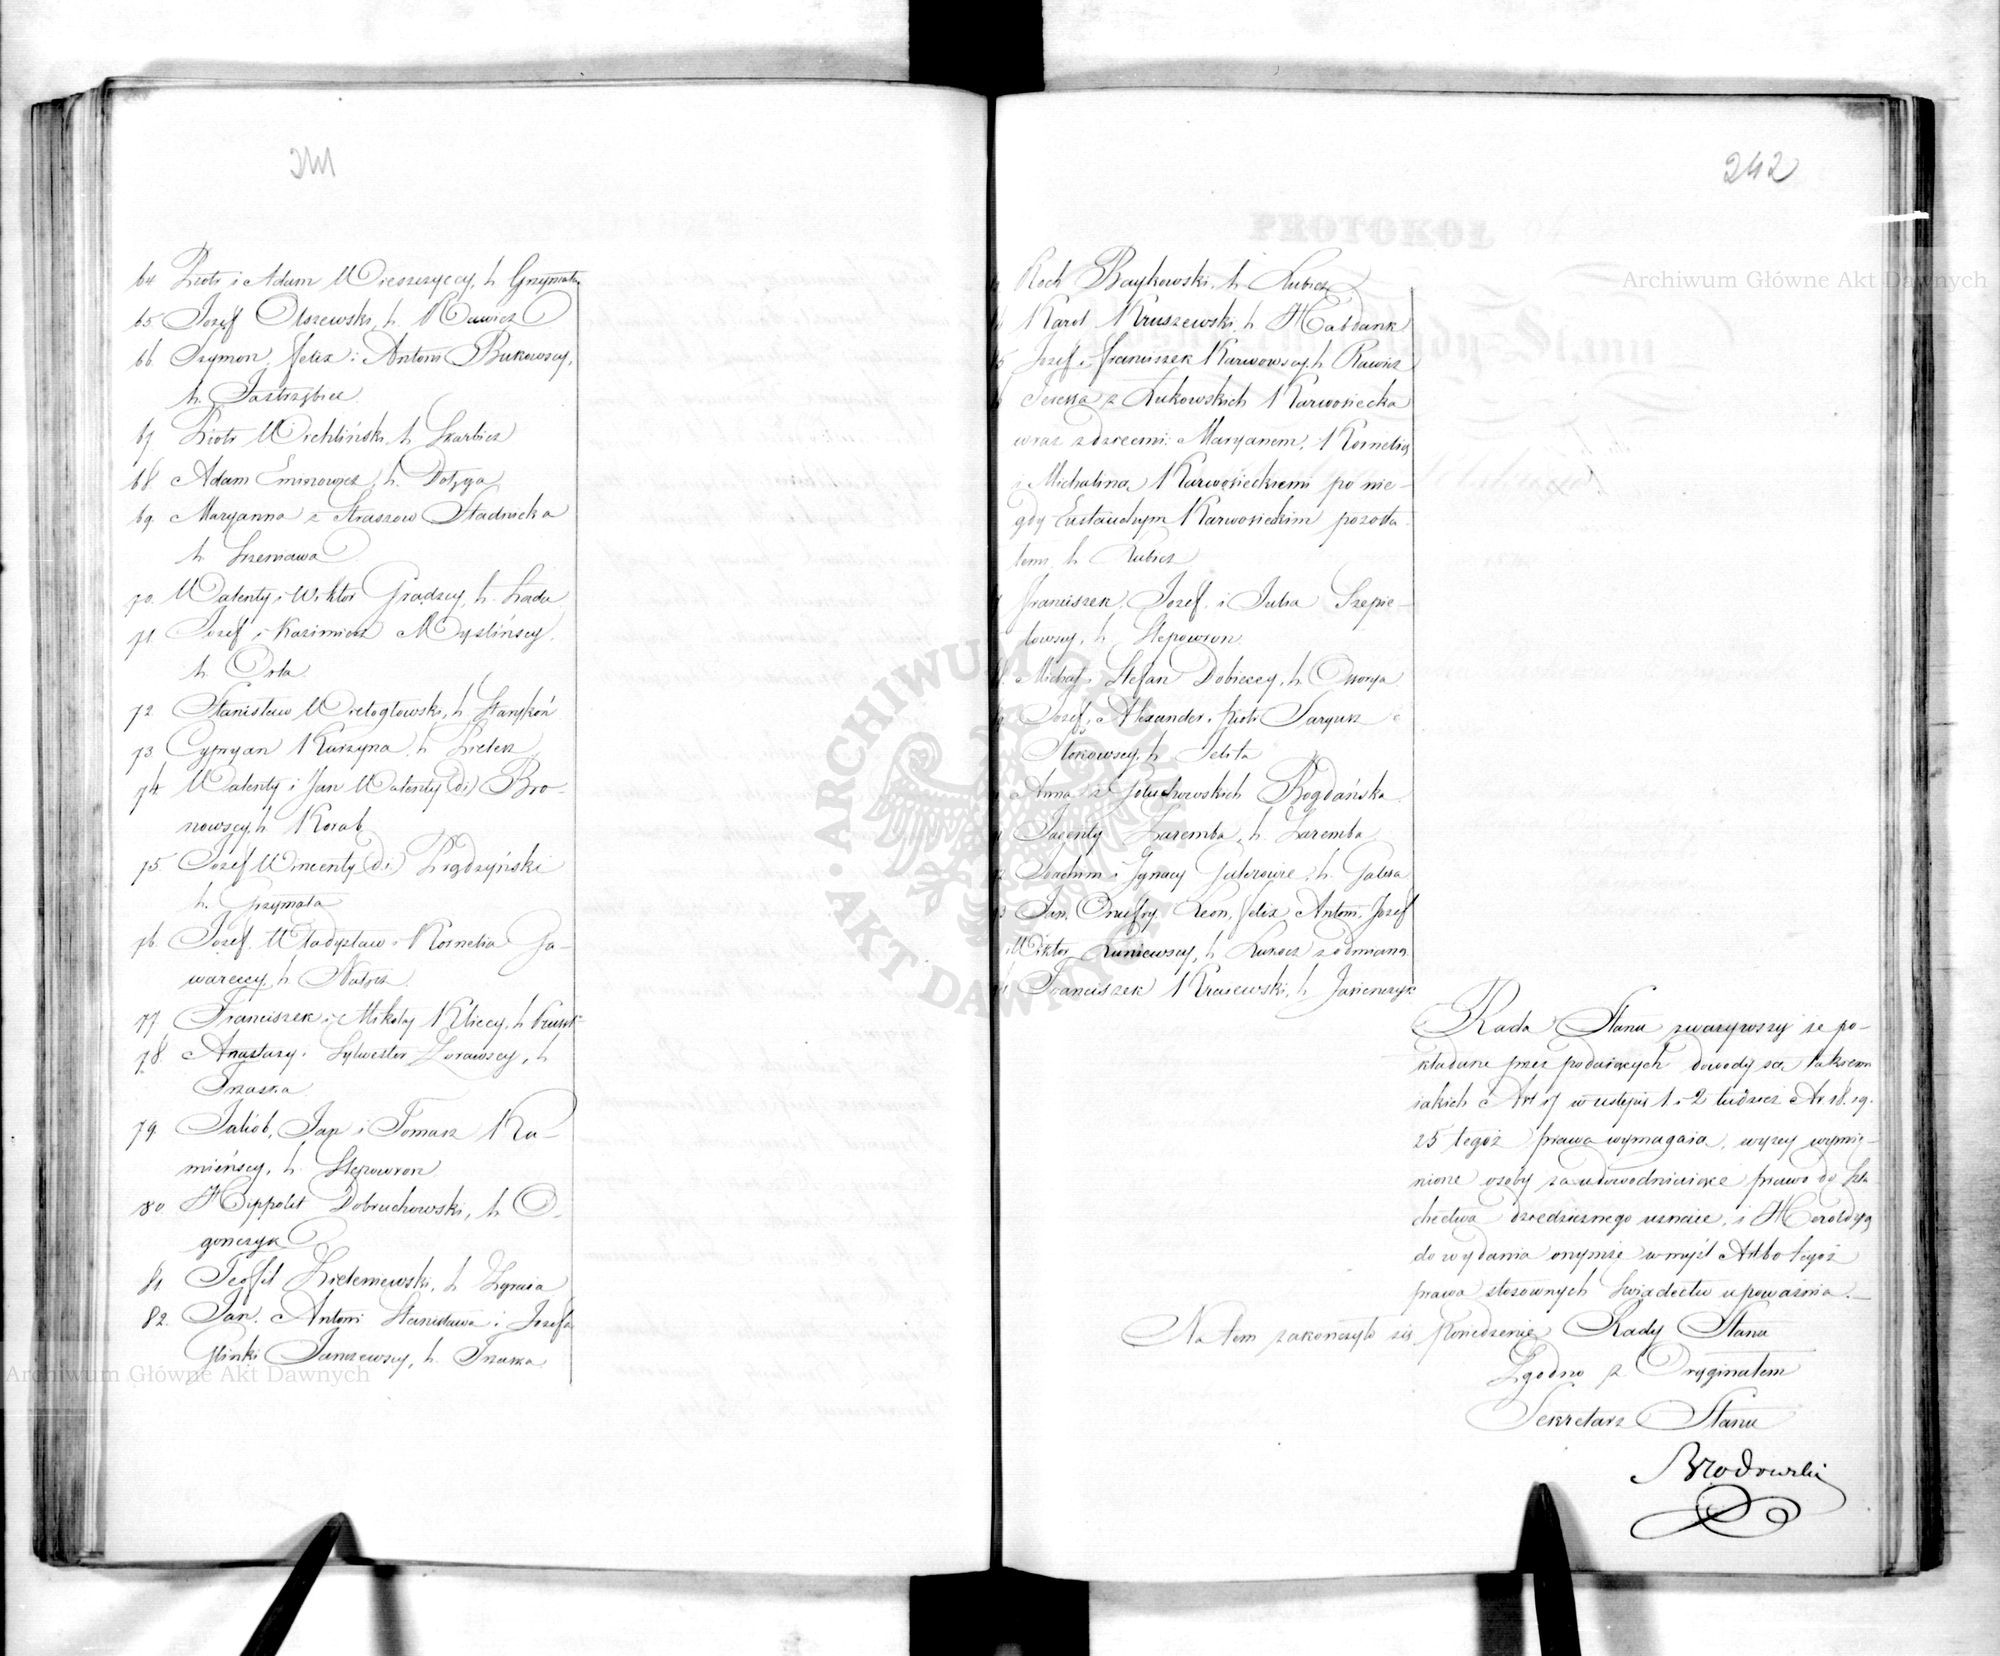 241
64 Piotr i Adam Wieszczyccy, h. Grzymała
65 Józef Olszewski, h. Rawicz
66. Szymon, Felix i Antoni Bukowscy,
h. Jastrzębiec
67 Piotr Wichliński, h. Skarbicz
68. Adam Eminowicz, h. Dołęga
69. Maryanna z Straszów Stadnicka
h. Szreniawa
70. Walenty i Wiktor Grądzcy, h. Łada
71. Józef i Kazimierz Myślińscy,
h. Orla
72. Stanisław Wieloglowski, h. Starykoń
73. Cypryan Kurzyna, h.
74 Walenty i Jan Walenty (2i) Bro-
nowscy, h. Korab
75. Józef Wincenty (2i)
h. Grzymała
76. Józef, Władysław i Kornelia Ga-
wareccy, h. Nałęcz
77. Franciszek i Mikołaj Kliccy, h.
78. Anastazy i Sylwester Żórawscy, h.
Trzaska
79. Jakób, Jan i Tomasz Ka-
mieńscy, h. Ślepowron
80. Hippolit Dobruchowski, h. O-
gonczyk
81. Teofil Zieleniewski, h. Zgraia
82. Jan, Antoni Stanisława i Józefa
Glinki Janczewscy, h. Trzaska
242
PROTOKÓŁ
Roch Baykowski, h. Lubicz
Karol Kruszewski, h. Habdank
Józef i Franciszek Karwowscy, h. Rawicz
Teressa z Łukowskich Karwosiecka
wraz z dziećmi: Maryanem, Kornelią
i Michaliną Karwosieckiemi po nie-
gdy Eustachym Karwosieckim pozosta
łemi, h. Lubicz
Franciszek, Józef, i Julia Szepie-
towscy, h. Ślepowron
Michał i Stefan Dobieccy, h. Ossorya
Józef, Alexander i Piotr Saryusz
Stokowscy, h. Jelita
Anna z Goluchowskich Bogdańska
Jacenty Zaremba, h. Zaremba
Joachim i Ignacy Galerowie, h.
Jan, Onufry, Leon, Felix Antoni, Józef
i Wiktor Łuniewscy, h. Łukocz z odmianą
Franciszek Kraiewski, h. Jasieńczyk
Rada Stanu zważywszy że po-
kładane przez podaiących dowody są takiemi
iakich Art 17 w ustępie 1 i 2 tudzież Ar. 18. 19.
25 tegoż prawa wymagaia, wyżey wymię-
nione osoby za udowodniaiące prawo do Szla
chectwa dziedzicznego uznaie, i Heroldyą
do wydania onymże w myśl Art 60 tegoż
prawa stosownych świadectw upoważnia.
Na tem zakończyło się Posiedzenie Rady Stanu
Zgodno z Oryginałem
Sekretarz Stanu
Brodowski
Archiwum Główne Akt Dawnych
Archiwum Główne Akt Dawnych
ARCHIWUM GŁÓWNE AKT DAWNYCH